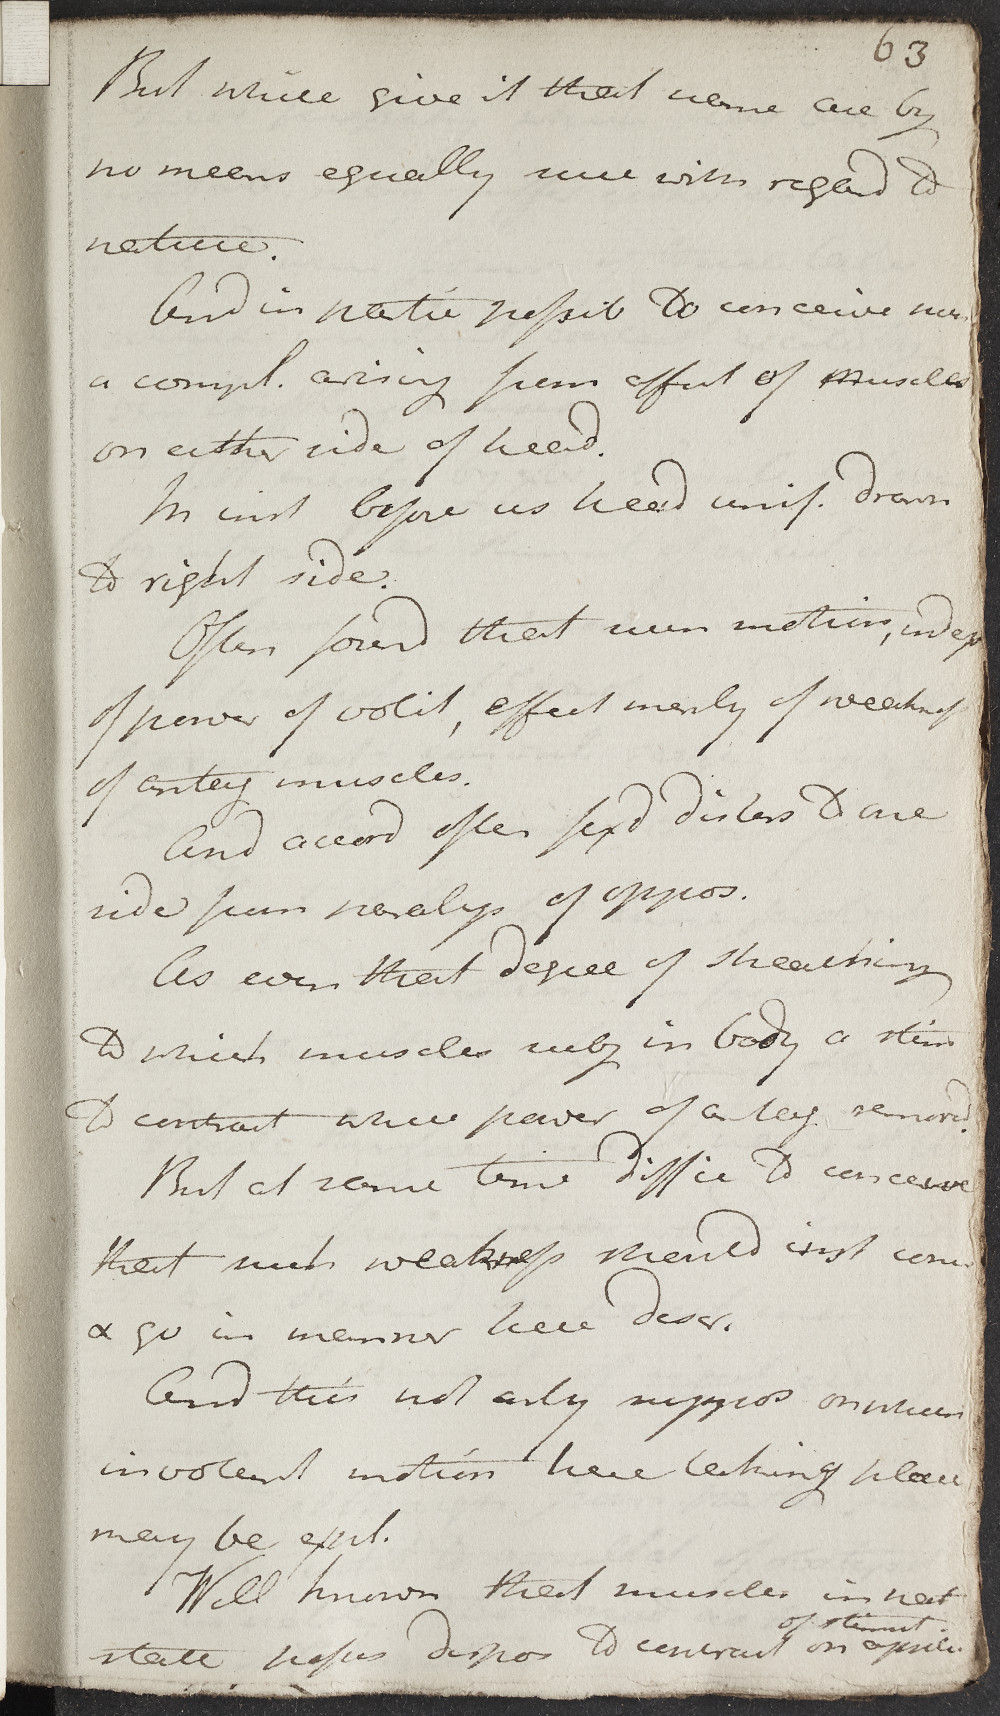 63
But while give it that name are by
no means equally sure with regard to
nature.
And in partic possib to conceive
a compl. arising from affect of muscles
on either side of head.
In inst before us head unif. drawn
to right side.
Often found that such motion, indep
of power of volit, effect merely of weakness
of antag muscles.
And accord often find distors to one
side from paralys of oppos.
As even that degree of stretching
to which muscles subj in body a stim
to contract where power of antag. removd.
But at same time diffic to conceive
that such weakness should inst come
& go in manner here descr.
And this not only suppos on which
involunt motion here taking place
may be expl.
Well known that muscles in nat
state posses dispos to contract on applic.
of stimul.